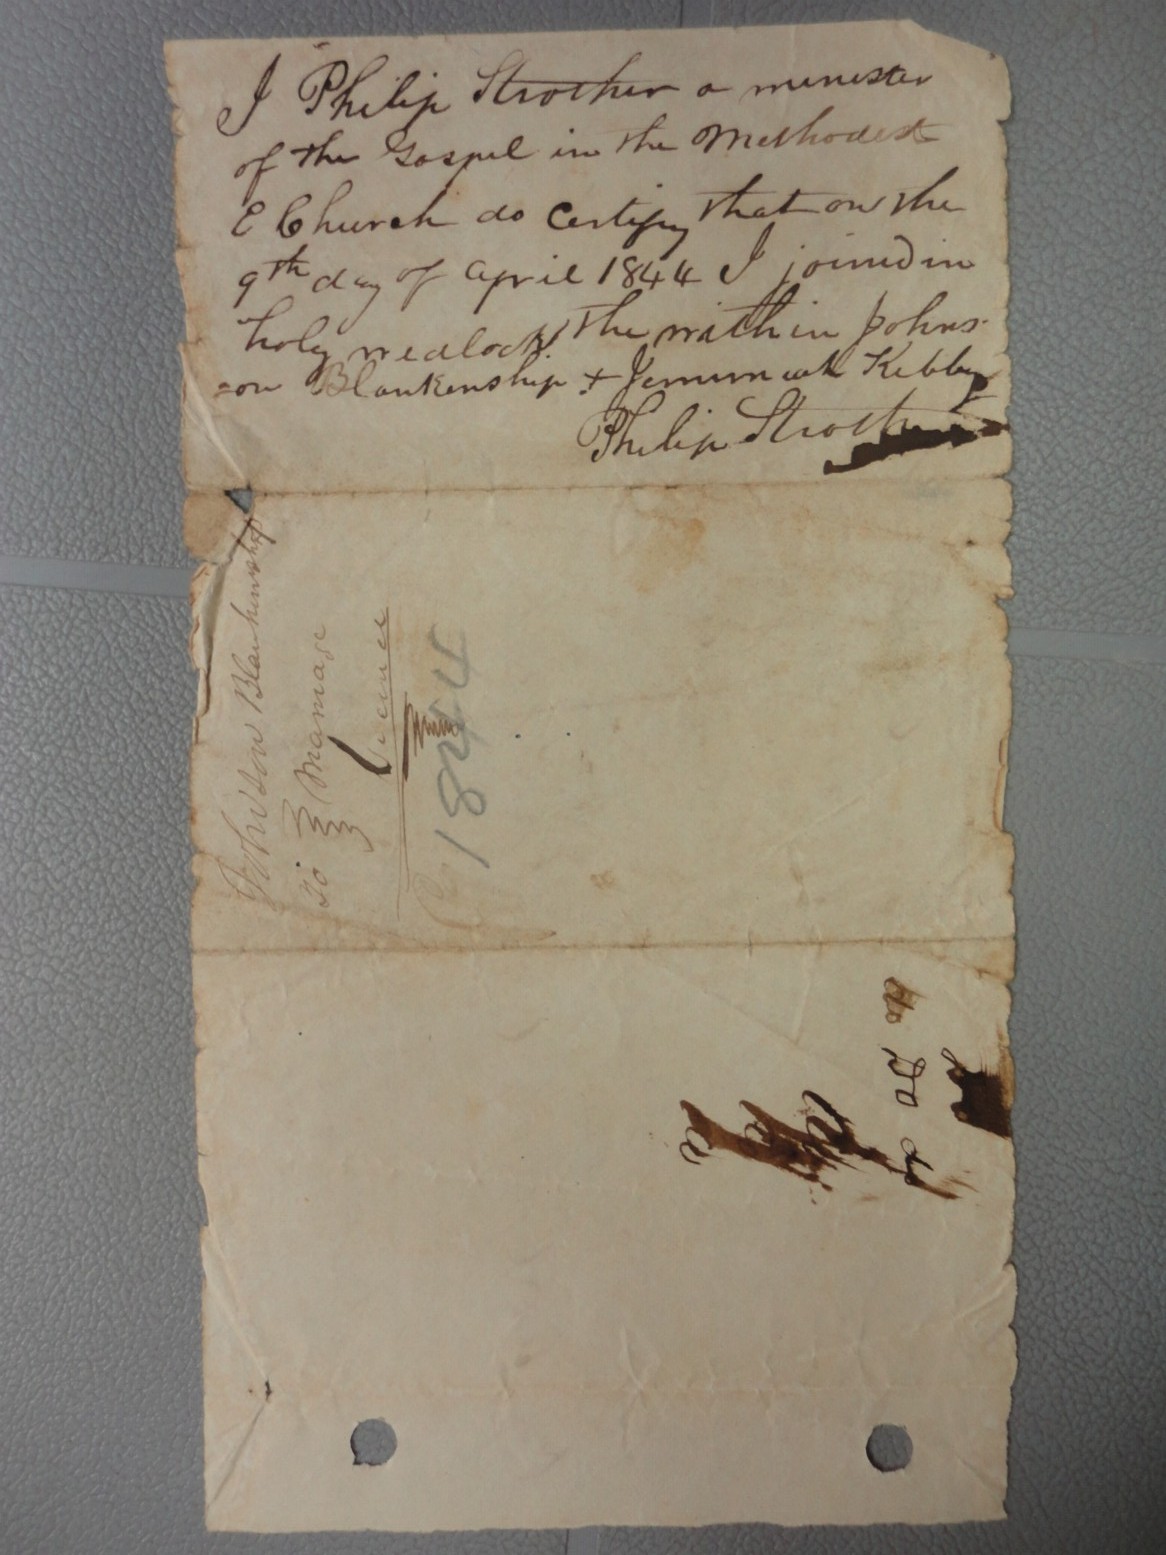 I Philip Strother a minester
of the Gospel in the Methodest
E Church do certify that on the
9th day of april 1844 I joined in
holy wedlock the within Johns-
=on Blankenship + Jemimah Kebby
Philip Strother
Johnston Blankinship
To Marriage
Licence
1844